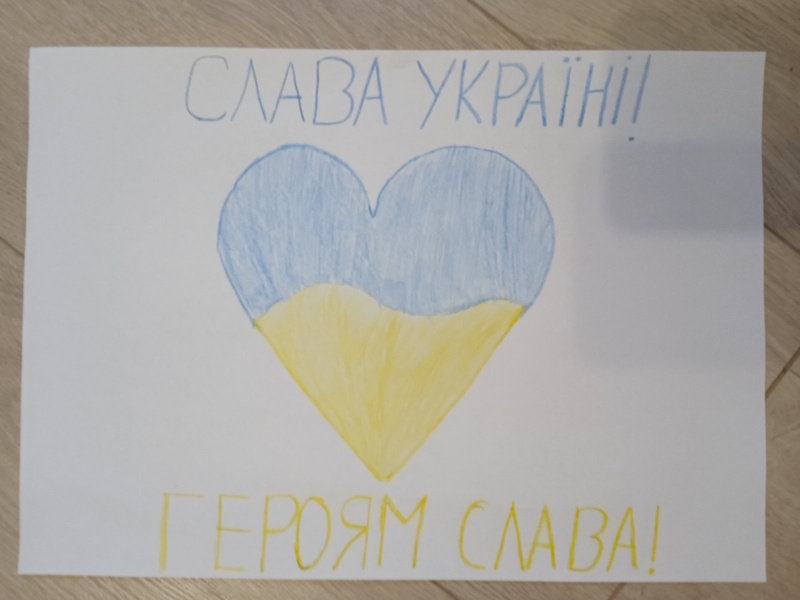 СЛАВА УКРАЇНІ!
ГЕРОЯМ СЛАВА!